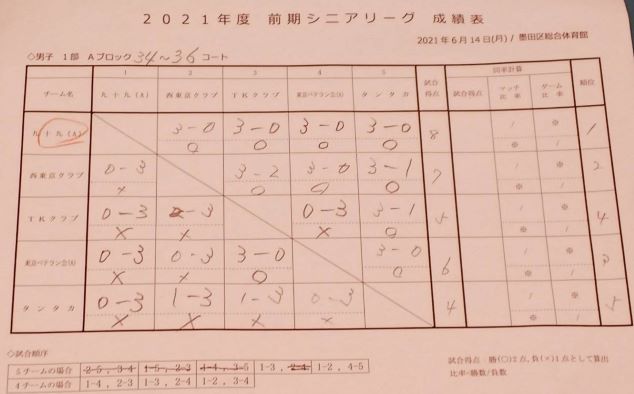 2021年度 前期シニアリーグ 成績表
2021年6月14日(月) / 墨田区総合体育館
◇男子 1部 Aブロック 34~36コート
チーム名 1 2 3 4 5 試合得点 同率計算 順位
九十九(A) 西東京クラブ TKクラブ 東京ベテラン会(A) タンタカ 試合得点 マッチ比率 ゲーム比率
九十九(A) 3-0 3-0 3-0 3-0 8 / ※ 1
○ ○ ○ ○ ※ /
西東京クラブ 0-3 3-2 3-0 3-1 7 / ※ 2
× ○ ○ ○ ※ /
TKクラブ 0-3 2-3 0-3 3-1 5 / ※ 4
× × × ○ ※ /
東京ベテラン会(A) 0-3 0-3 3-0 3-0 6 / ※ 3
× × ○ ○ ※ /
タンタカ 0-3 1-3 1-3 0-3 4 / ※ 5
× × × × ※ /
◇試合順序
5チームの場合 2-5, 3-4 1-5, 2-3 1-4, 3-5 1-3, 2-4 1-2, 4-5
4チームの場合 1-4, 2-3 1-3, 2-4 1-2, 3-4
試合得点:勝(○)2点,負(×)1点として算出
比率=勝数/負数